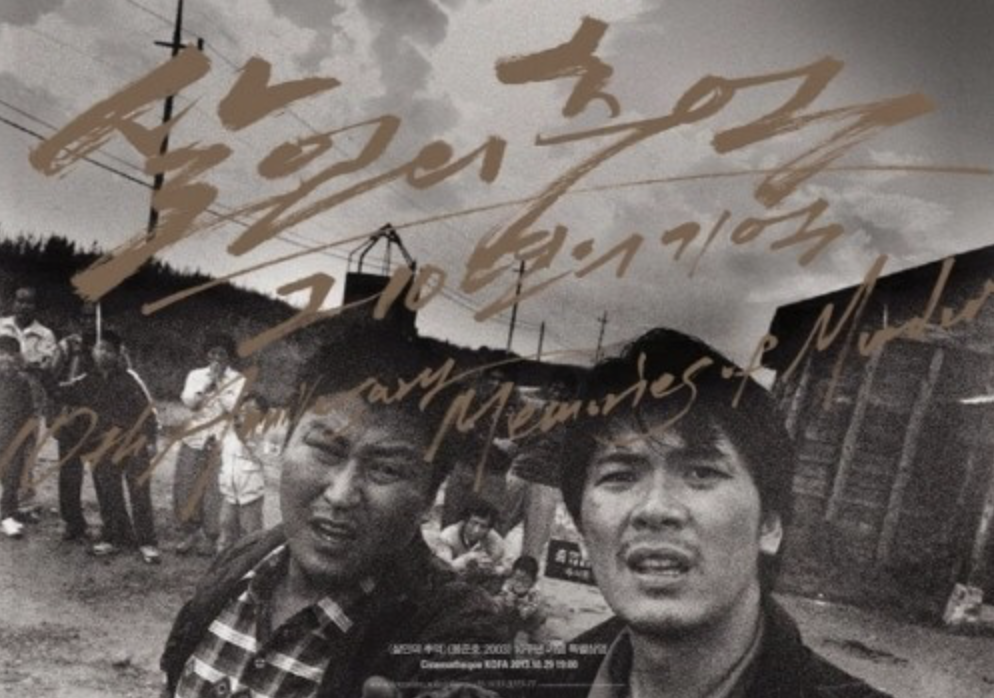 살인의 추억
그 10년의 기억
10th Anniversary Memories of Murder
<살인의 추억> (봉준호, 2003) 10주년 기념 특별상영
Cinematheque KOFA 2013.10.29 19:00